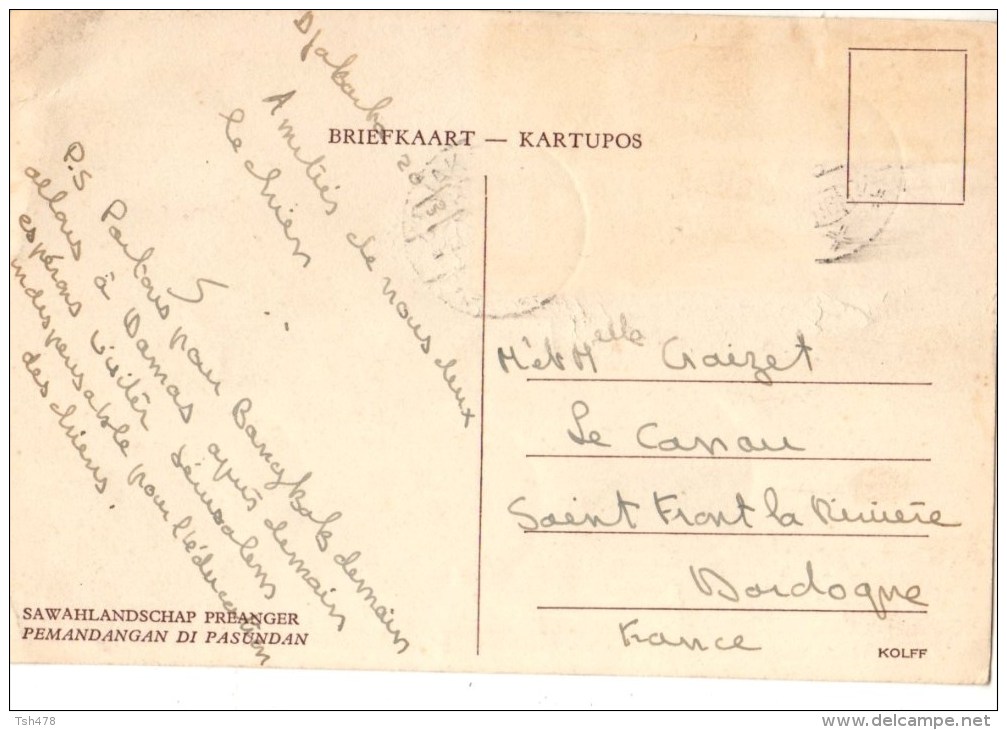 BRIEFKAART — KARTUPOS
Djakarta 28/3
Amitiés de nous deux
le chien
P.S Partons pour Bangkok demain
allons à Damas après demain
espérons visiter Jérusalem
indispensable pour l'éducation
des chiens.
Mr et Melle Croizet
Le Canau
Saint Front la Rivière
Dordogne
France
SAWAHLANDSCHAP PREANGER
PEMANDANGAN DI PASUNDAN
KOLFF
Tsh478
www.delcampe.net